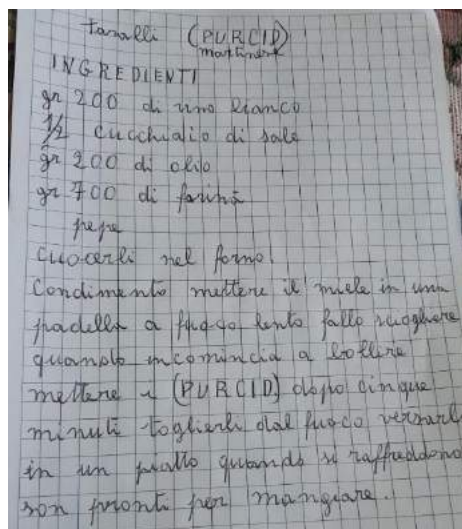 taralli (PURCID)
INGREDIENTI
gr 200 di vino bianco
1/2 cucchiaio di sale
gr 200 di olio
gr 700 di farina
pepe
cuocerli nel forno
Condimento mettere il miele in una
padella a fuoco lento fallo sciogliere
quando incomincia a bollire
mettere i (PURCID) dopo cinque
minuti toglierli dal fuoco versarli
in un piatto quando si raffreddono
son pronti per mangiare.